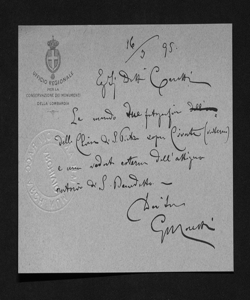 UFFICIO REGIONALE
PER LA
CONSERVAZIONE DEI MONUMENTI
DELLA LOMBARDIA
16/3 95.
Egr. Dott.
Le mando due fotografie
della Chiesa di S. Pietro sopra Civate (interno)
e una veduta esterna dell'attiguo
oratorio di S. Benedetto —
Dev.
G Moretti